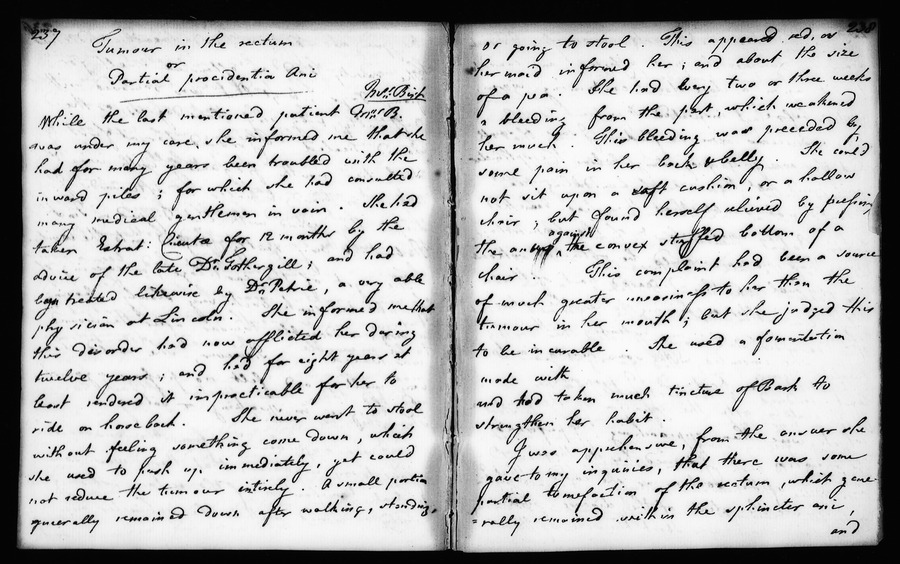 237
Tumour in the rectum
or
Partial procidentia Ani
Mrs. Bist
While the last mentioned patient Mrs. B.
was under my care, she informed me that she
had for many years been troubled with the
inward piles; for which she had consulted
many medical gentlemen in vain. She had
taken Extrat: Cicutæ for 12 months by the
advice of the late Dr. Fothergill; and had
been treated likewise by Dr. Petrie, a very able
physician at Lincoln. She informed me that
this disorder had now afflicted her during
twelve years; and had for eight years at
least rendered it impracticable for her to
ride on horseback. She never went to stool
without feeling something come down, which
she used to push up immediately, yet could
not reduce the tumour intirely. A small portion
generally remained down after walking, standing,
238
or going to stool. This appeared red, as
her maid informed her; and about the size
of a pea. She had every two or three weeks
a bleeding from the part, which weakened
her much. This bleeding was preceded by
some pain in her back & belly. She could
not sit upon a soft cushion, or a hollow
chair; but found herself relieved by pressing
the anus against the convex stuffed bottom of a
chair. This complaint had been a source
of much greater uneasiness to her than the
tumour in her mouth; but she judged this
to be incurable. She used a fomentation
made with
and had taken much tincture of Bark to
strengthen her habit.
I was apprehensive, from the answer she
gave to my inquiries, that there was some
partial tumefaction of the rectum, which gene
=rally remained within the sphincter ani,
and